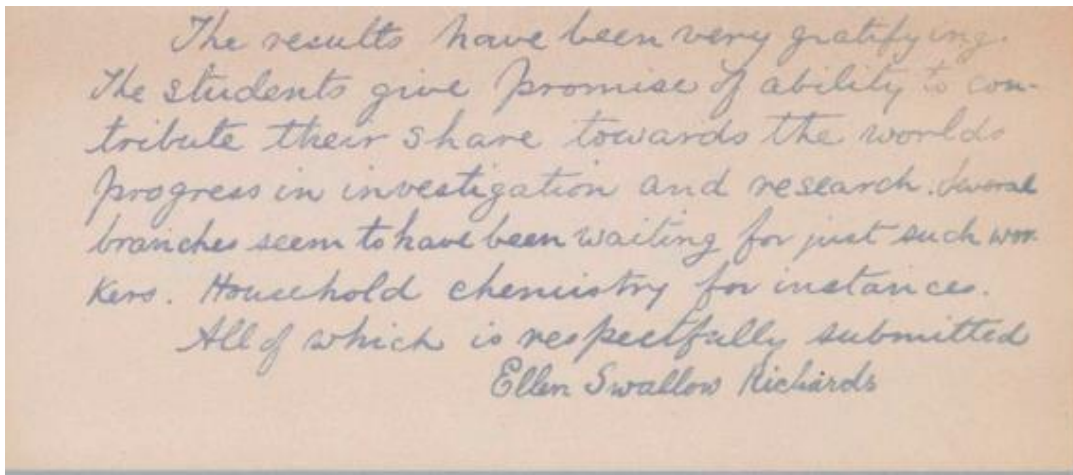 The results have been very gratifying.
The students give promise of ability to con-
tribute their share towards the worlds
progress in investigation and research. Several
branches seem to have been waiting for just such wor-
kers. Household chemistry for instances.
All of which is respectfully submitted
Ellen Swallow Richards